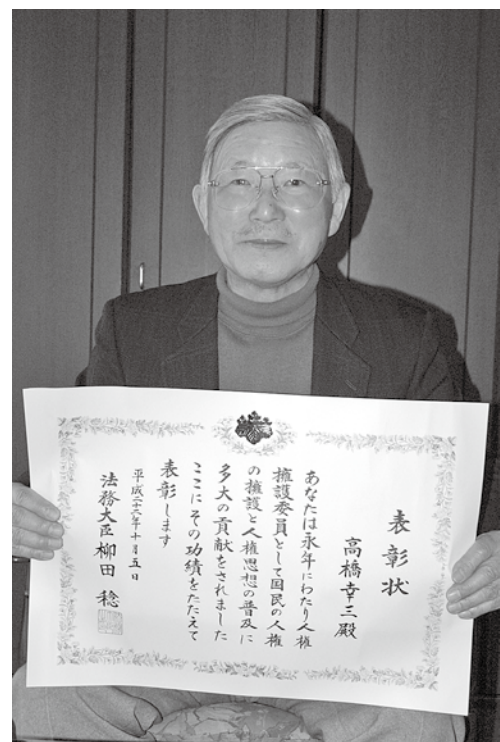 表彰状
高橋幸三殿
あなたは永年にわたり人権
擁護委員として国民の人権
の擁護と人権思想の普及に
多大の貢献をされました
ここにその功績をたたえて
表彰します
平成二十二年十月五日
法務大臣 柳田 稔